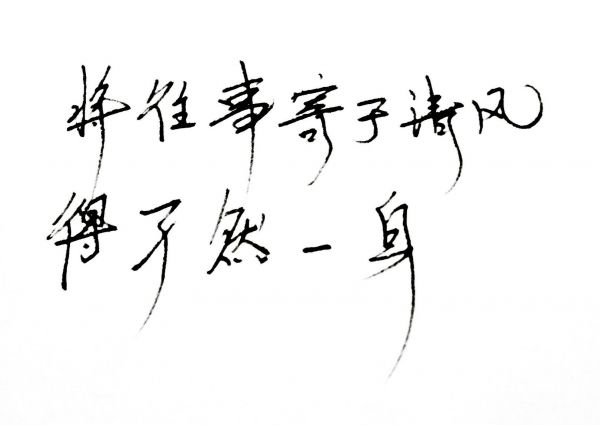 将往事寄予清风
得孑然一身